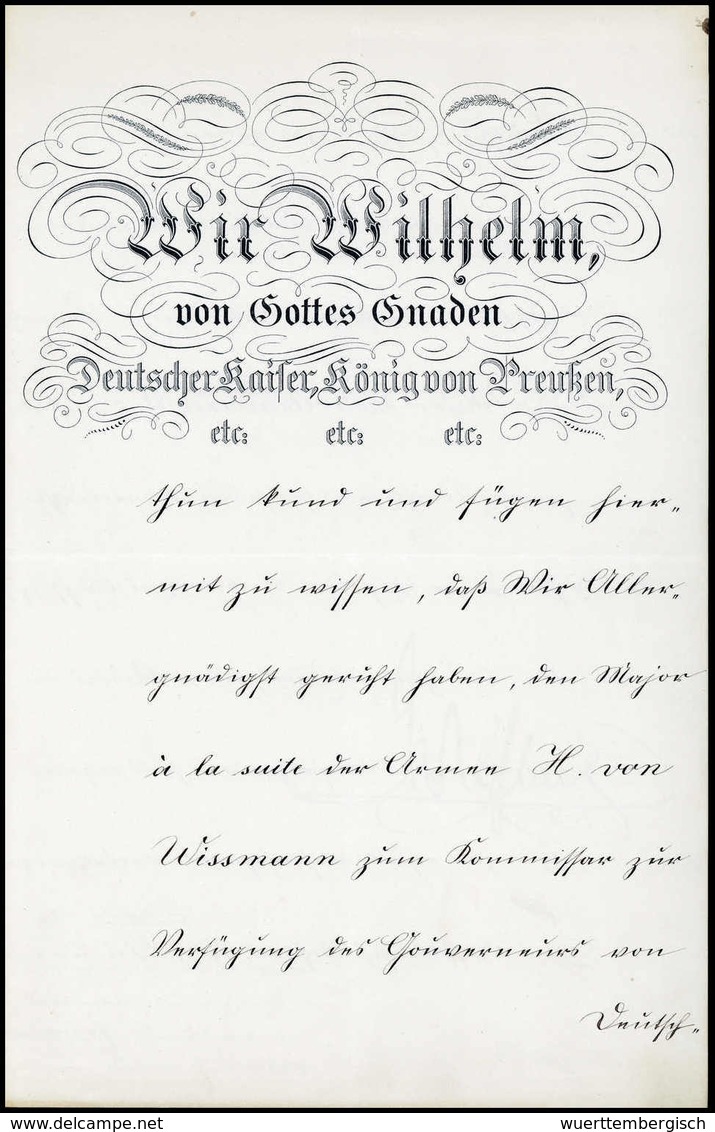 Wir Wilhelm,
von Gottes Gnaden
Deutscher Kaiser, König von Preußen,
etc: etc: etc:
thun kund und fügen hier-
mit zu wissen, daß Wir Aller-
gnädigst geruht haben, den Major
à la suite der Armee H. von
Wissmann zum Kommissar zur
Verfügung des Gouverneurs von
Deutsch-
© delcampe.net
wuerttembergisch